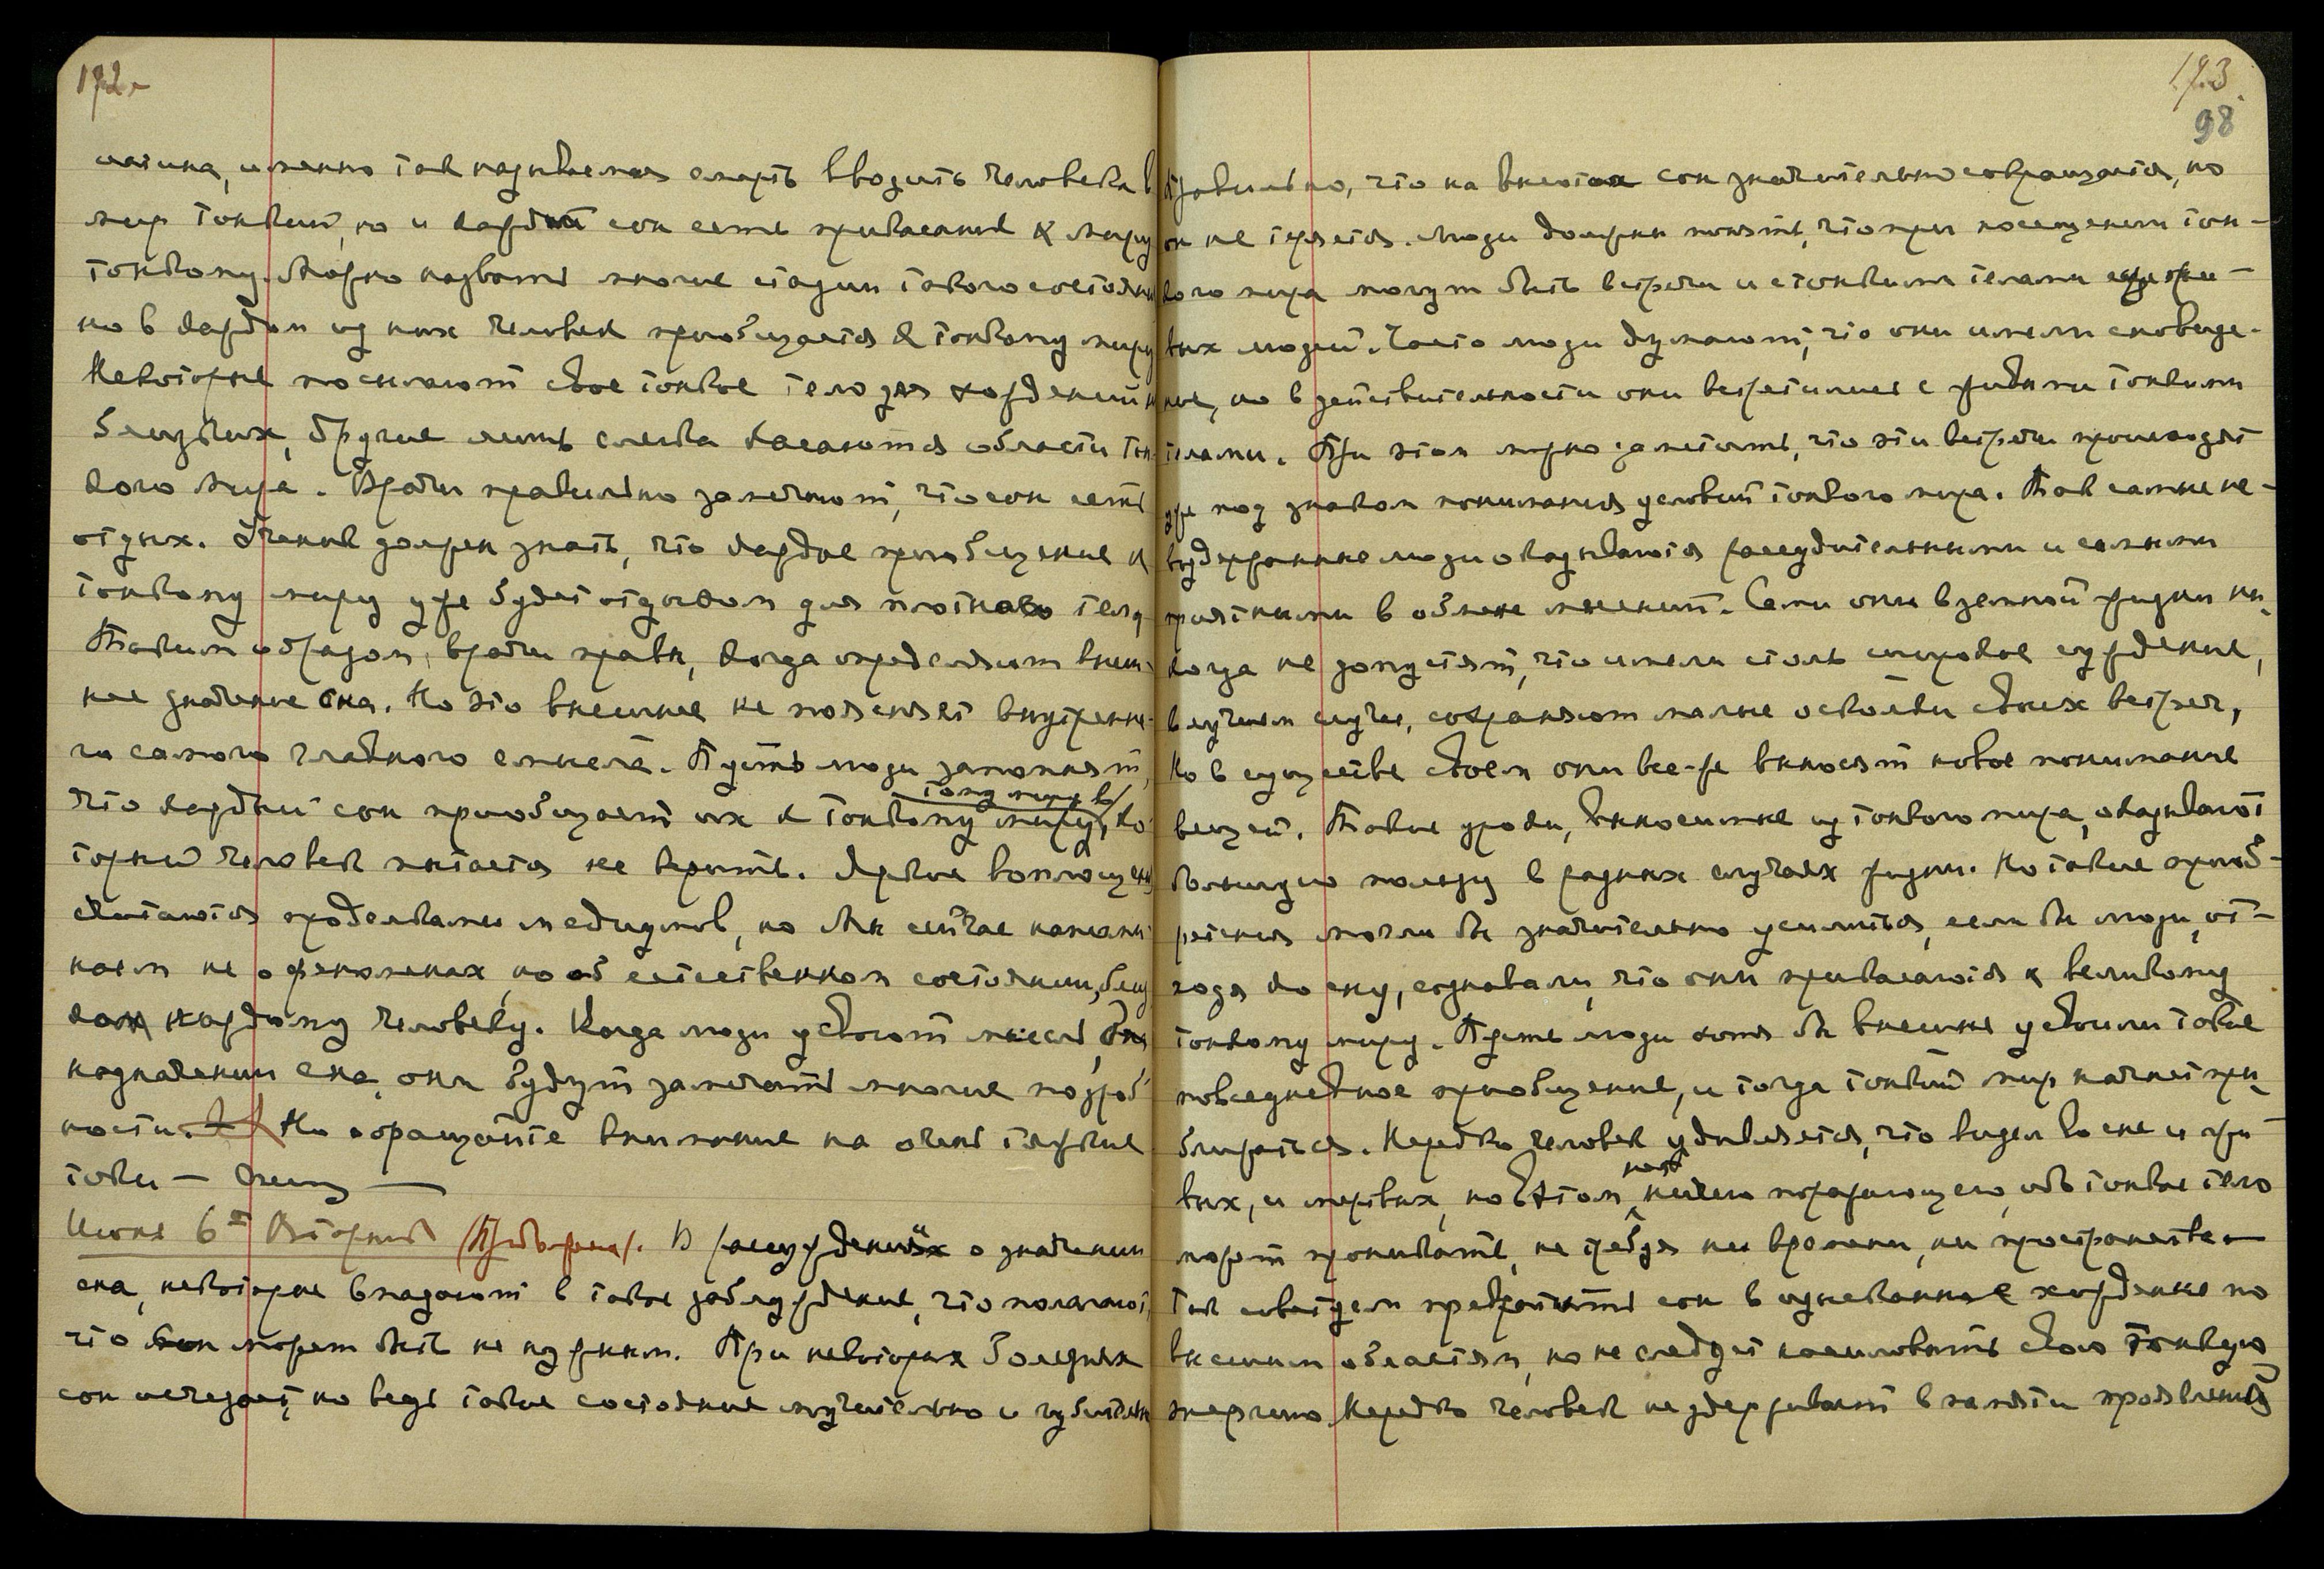 172.
истина, именно так называемая смерть вводить человека в
мир тонкий, но и каждый сон есть прикасание к миру
тонкому. Можно назвать многие стадии такого состояния
но в каждом из них человек приобщается к тонкому миру
Некоторые посылают свое тонкое тело для хождений и
близких, другие лишь слегка касаются области тон-
кого мира. Врачи правильно замечают, что сон есть
отдых. Ученик должен знать, что каждое приобщение к
тонкому миру уже будет отдыхом для плотного тела
Таким образом, врачи правы, когда определяют внеш-
нее значение сна. Но это внешнее не поясняет внутренне-
го самого главного смысла. Пусть люди запомнят,
тому миру в
что каждый сон приобщает их к Тонкому миру, ко-
торый человек пытается не верить. Яркие воплощения
считаются проделками медиумов, но Мы сейчас напоми-
наем не о феноменах, но об естественном состоянии, близ-
ком каждому человеку. Когда люди усвоют мысль о
назначении сна, они будут замечать многие подроб-
ности. Но обращайте внимание на очень тяжкие
токи —
Июня 6ое Вторник В рассуждениях о значении
сна, некоторые впадают в такое заблуждение, что полагают,
что сон может быть не нужным. При некоторых болезнях
сон исчезает, но ведь такое состояние мучительно и губительн
173.
98
Правильно, что на высотах сон значительно сокращается, но
он не теряется. Люди должны понять, что при посещении тон-
кого мира могут быть встречи и с тонкими телами еще жи-
вых людей. Часто люди думают, что они имели сновиде-
ние, но в действительности они встретились с живыми тонкими
телами. При этом можно заметить, что эти встречи происходят
уже под знаком понимания условий тонкого мира. Так самые не-
воздержанные люди оказываются рассудительными и самыми
приятными в обмене мнений. Сами они в земной жизни ни-
когда не допустят, что имели столь широкое суждение,
в лучшем случае, сохраняют малые осколки своих встреч,
Но в существе своем они все-же вносят новое понимание
вещей. Такие уроки, вынесенные из тонкого мира, оказывают
большую пользу в разных случаях жизни. Но такие приоб-
ретения могли бы значительно усилиться, если бы люди, от-
ходя ко сну, сознавали, что они прикасаются к великому
тонкому миру. Пусть люди хотя бы внешне усвоили такое
повседневное приобщение, и тогда тонкий мир начнет при-
ближаться. Нередко человек удивляется, что видел во сне и жи-
вых, и мертвых, но в этом нет ничего поражающего, ибо тонкое тело
может проникать, не требуя ни времени, ни пространства —
Так советуем предпочитать сон в изысканные хождения по
высшим областям, но не следует насиловать свою тонкую
энергию. Нередко человек не удерживает в памяти проявлений